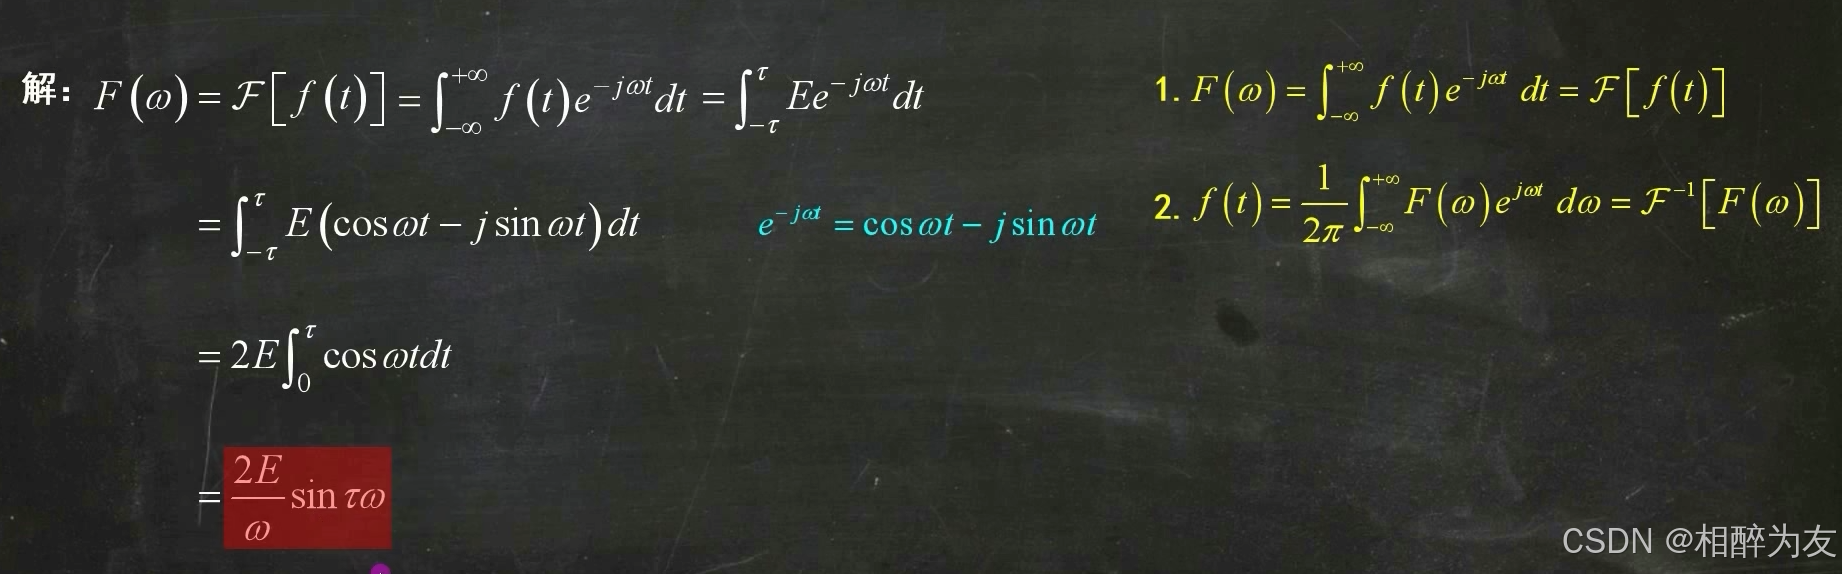 解: F(ω) = ℱ[f(t)] = ∫_{-∞}^{+∞} f(t)e^{-jωt}dt = ∫_{-τ}^{τ} Ee^{-jωt}dt
= ∫_{-τ}^{τ} E(cosωt − j sinωt)dt
e^{-jωt} = cosωt − j sinωt
= 2E∫_{0}^{τ} cosωtdt
= \frac{2E}{ω} sinτω
1. F(ω) = ∫_{-∞}^{+∞} f(t)e^{-jωt} dt = ℱ[f(t)]
2. f(t) = \frac{1}{2π}∫_{-∞}^{+∞} F(ω)e^{jωt} dω = ℱ^{-1}[F(ω)]
CSDN @相醉为友